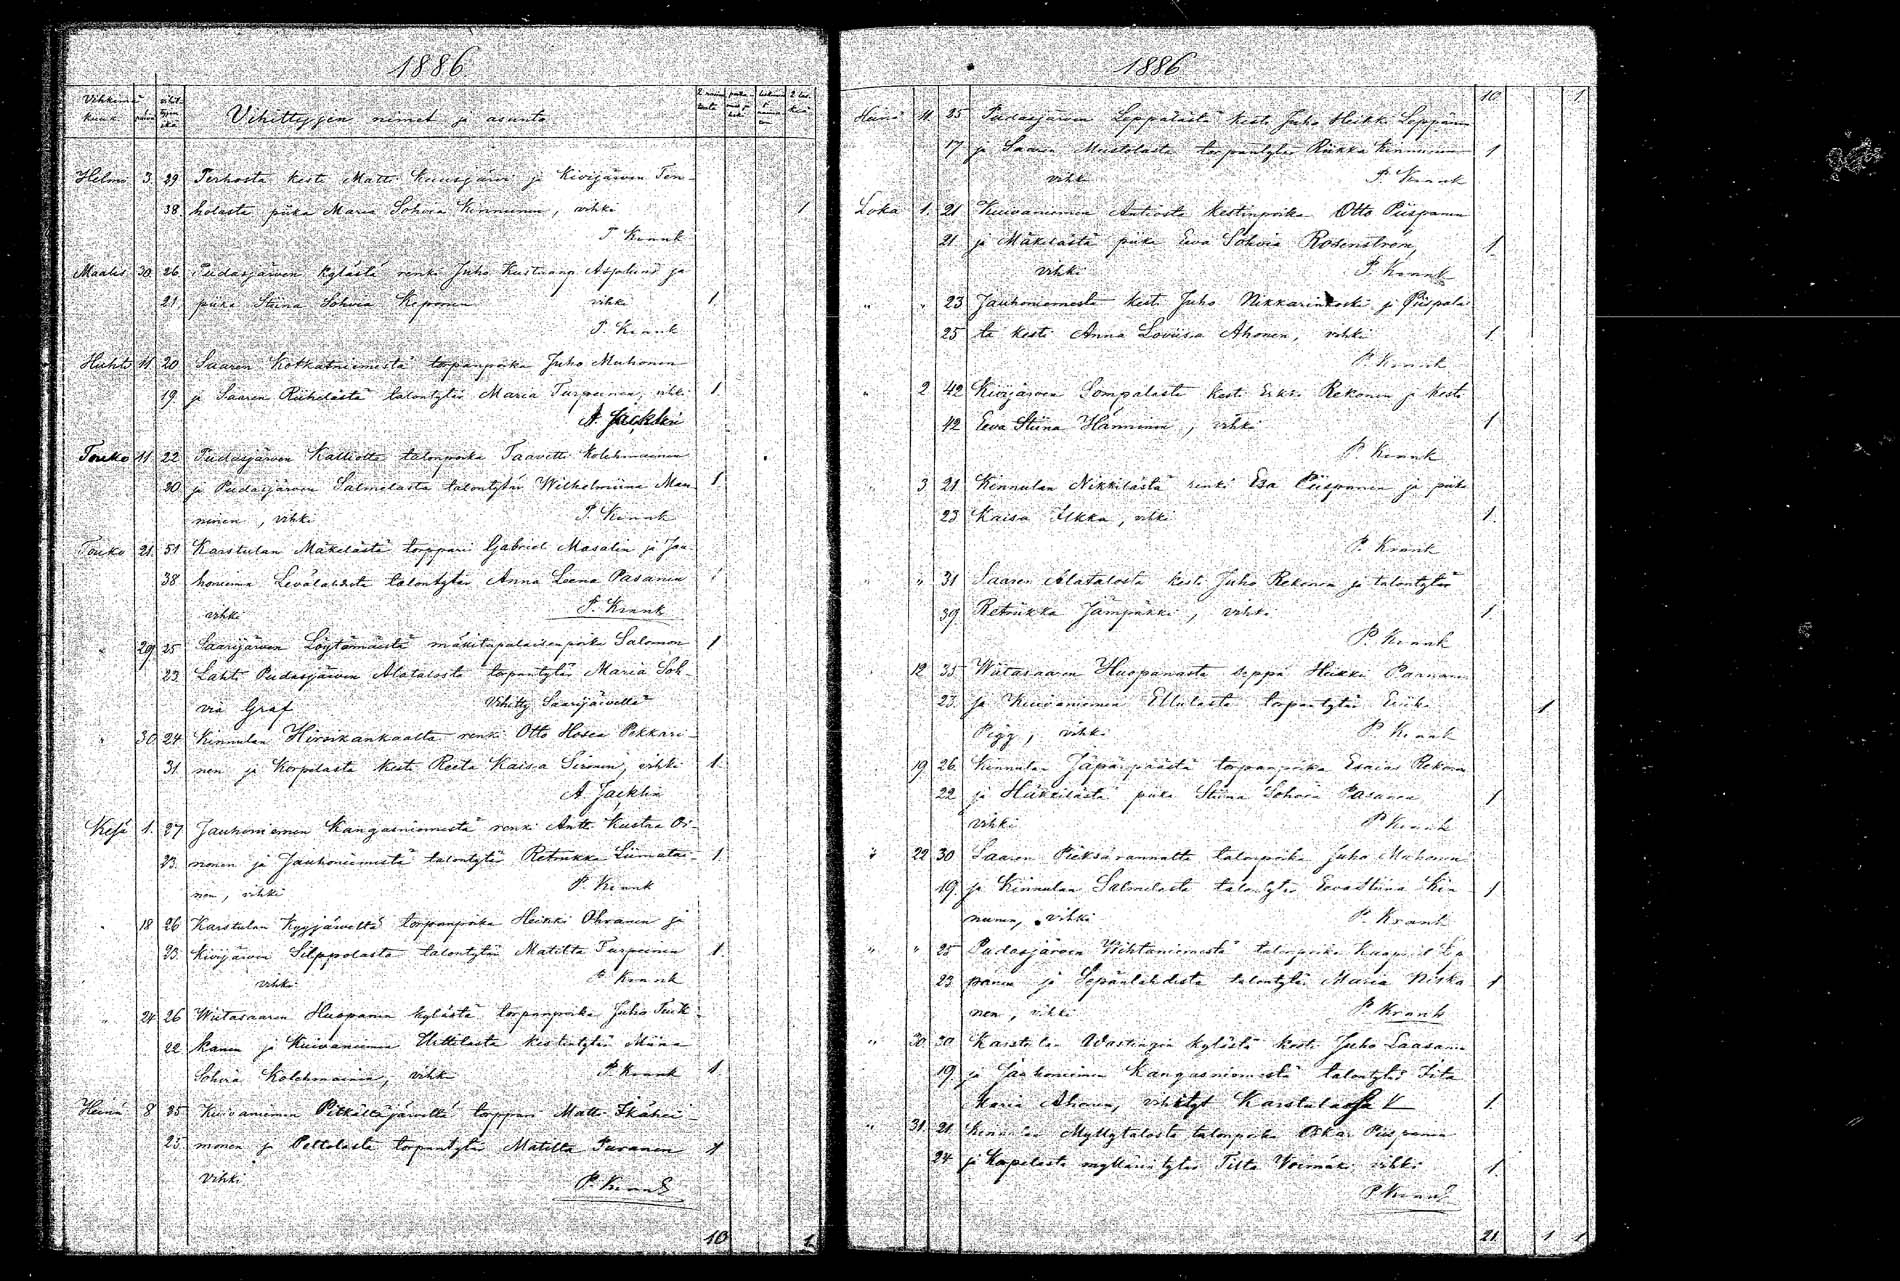 1886
Vihkimä kuu päivä vihit- tyjen ikä Vihittyjen nimet ja asunto
Helmi 3. 29 Perhosta kesti Matti Kuusjärvi ja Kivijärven Ten-
38 holasta piika Maria Sohvia Kinnunen, vihki 1
P. Krank
Maalis 30. 26 Pudasjärven kylästä renki Juho Kustaanp. Asplund ja
21 piika Stiina Sohvia Keponen vihki 1
P. Krank
Huhti 11 20 Saaren Kotkatniemestä torpanpoika Juho Muhonen
19 ja Saaren Riihelästä talontytär Maria Turpeinen, vihki 1
A. Jacklin
Touko 11 22 Pudasjärven Kalliolta talonpoika Taavetti Kolehmainen
20 ja Pudasjärven Salmelasta talontytär Wilhelmiina Man 1
ninen, vihki P. Krank
Touko 21. 51 Karstulan Mäkelästä torppari Gabriel Masalin ja Jau
38 honiemen Levälahdesta talontytär Anna Leena Pasanen 1
vihki P. Krank
29 25 Saarijärven Löytämäestä mäkitupalaisenpoika Salomon 1
23. Lahti Pudasjärven Alatalosta torpantytär Maria Soh-
via Graf Vihitty Saarijärvellä
30 24 Kinnulan Hirsikankaalta renki Otto Hosea Pekkari-
31 nen ja Korpelasta kesti Reeta Kaisa Sironen, vihki 1.
A. Jacklin
Kesä 1. 27 Jauhoniemen Kangasniemestä renki Antti Kustaa Oi-
23. nonen ja Jauhoniemestä talontytär Retrikka Liimatai- 1
nen, vihki P. Krank
18 26 Karstulan Kyyjärveltä torpanpoika Heikki Ohranen ja
23. Kivijärven Silppolasta talontytär Matilta Turpeinen 1
vihki P. Krank
24 26 Wiitasaaren Huopanan kylästä torpanpoika Juho Tuik-
22 kanen ja Kuivaniemen Uittilasta kestintytär Miina
Sohvia Kolehmainen, vihki P. Krank 1
Heinä 8 35 Kuivaniemen Pitkältäjärveltä torppari Matti Ikähei-
25. monen ja Peltolasta torpantytär Matilta Puranen 1
vihki P. Krank
10 1
1886
10 1
Heinä 11. 25 Pudasjärven Leppälästä kesti Juho Heikki Leppänen
17 ja Saaren Mustolasta torpantytär Riikka Kinnunen 1
vihki P. Krank
Loka 1. 21 Kuivaniemen Anttiosta kestinpoika Otto Piispanen
21 ja Mäkelästä piika Eeva Sohvia Rosenström, 1
vihki P. Krank
" " 23 Jauhoniemestä kesti Juho Nikkarinkoski ja Piispala
25 ta kesti Anna Loviisa Ahonen, vihki 1
P. Krank
" 2 42 Kivijärven Sompalasta kesti Erkki Rekonen ja kesti
42 Eeva Stiina Hänninen, vihki 1
P. Krank
3 21 Kinnulan Nikkilästä renki Esa Piispanen ja piika
23 Kaisa Ilkka, vihki 1.
P. Krank
" 31 Saaren Alatalosta kesti Juho Rekonen ja talontytär
39 Retriikka Jämpäkki, vihki 1.
P. Krank
12 35 Wiitasaaren Huopanasta seppä Heikki Paananen
23. ja Kuivaniemen Ellulasta torpantytär Eriika 1
Pigg, vihki P. Krank
19 26. Kinnulan Jäpänpäästä torpanpoika Esaias Rekonen
22 ja Häkkilästä piika Stiina Sohvia Pasanen 1
vihki P. Krank
" 22 30 Saaren Pieksärannalta talonpoika Juho Muhonen
19. ja Kinnulan Salmelasta talontytär Eeva Stiina Kin 1
nunen, vihki P. Krank
" " 25 Pudasjärven Wihtaniemestä talonpoika Kaapriel Lep
23 pänen ja Sepänlahdesta talontytär Maria Niska 1
nen, vihki P. Krank
" 30 30 Karstulan Wastingin kylästä kesti Juho Laasanen
19. ja Jauhoniemen Kangasniemestä talontytär Iita
Maria Ahonen, vihityt Karstulassa 1.
" 31. 21. Kinnulan Myllytalosta talonpoika Oskar Piispanen
24 ja Korpelasta myllärintytär Tilta Voimäki, vihki 1.
P. Krank
21. 1 1